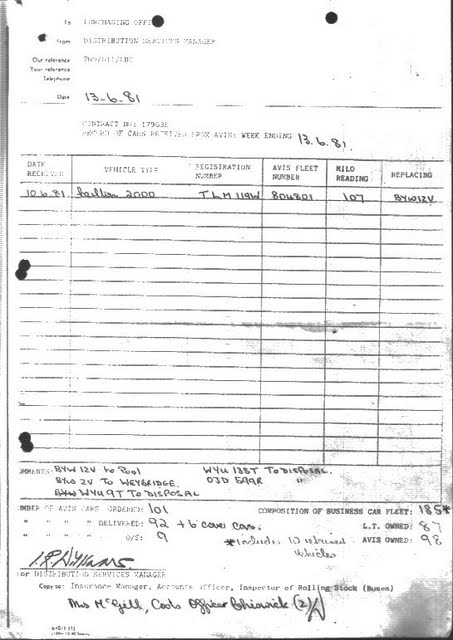 To PURCHASING OFFI
From DISTRIBUTION SERVICES MANAGER
Our reference
Your reference
Telephone
Date 13.6.81
CONTRACT NO:
RECORD OF CARS RECEIVED FROM AVIS: WEEK ENDING 13.6.81.
DATE RECEIVED VEHICLE TYPE REGISTRATION NUMBER AVIS FLEET NUMBER MILO READING REPLACING
10.6.81 2000 TLM 119W 804801 107 BYW12V
OMMENTS: BYW 12V to Pool WYU 135T TO DISPOSAL.
BYW 2V TO WEYBRIDGE. "
WYU 9T TO DISPOSAL
UMBER OF AVIS CARS ORDERED: 101 COMPOSITION OF BUSINESS CAR FLEET: 185*
" " " " DELIVERED: 92 + 6 cars. L.T. OWNED: 87
" " " " O/S: 9 *Includes 10 retained vehicles AVIS OWNED: 98
or DISTRIBUTION SERVICES MANAGER
Copy to: Insurance Manager, Accounts Officer, Inspector of Rolling Stock (Buses)
McGill, Officer Chiswick (2)